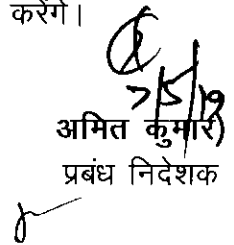 करेंगे।
7/5/19
अमित कुमार)
प्रबंध निदेशक